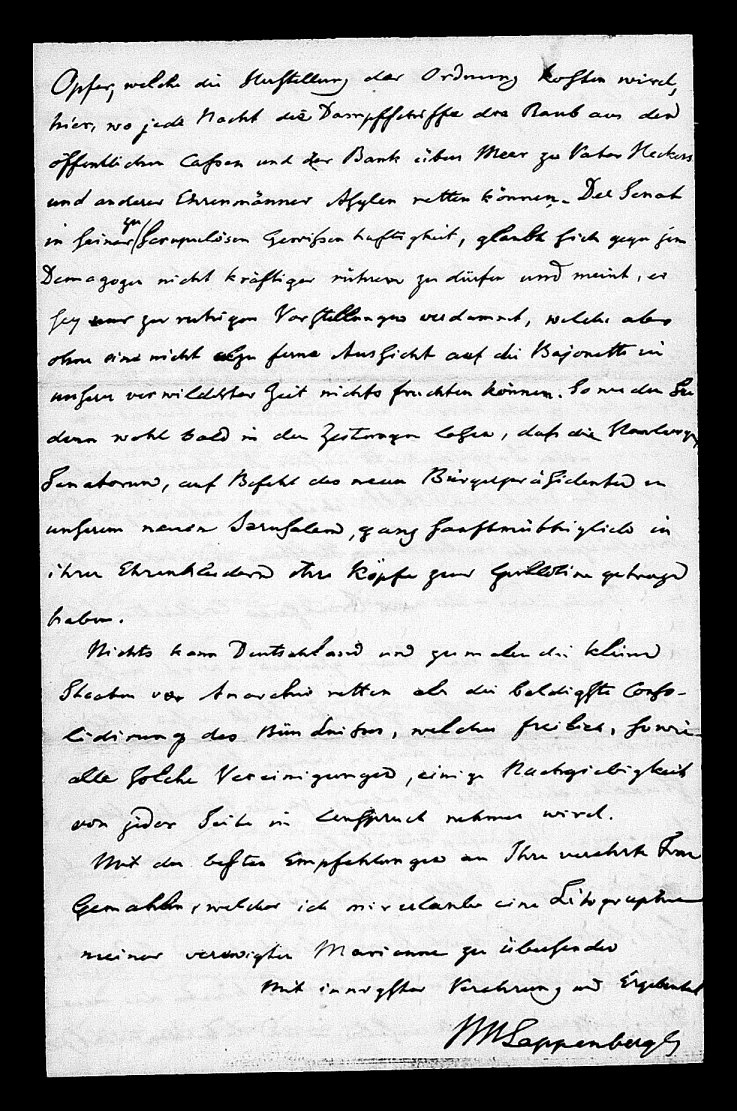 Opfer, welche die Herstellung der Ordnung kosten wird,
hier, wo jede Nacht die Dampfschiffe den Raub aus den
öffentlichen Cassen und der Bank übers Meer zu Vater Heckers
und anderer Ehrenmänner Asylen retten können. Der Senat
in seiner zu scrupulösen Gewissenhaftigkeit, glaubt sich gegen jene
Demagogen nicht kräftiger rühren zu dürfen und meint, er
sey nur zu ruhigen Vorstellungen verdammt, welche aber
ohne eine nicht allzu ferne Aussicht auf die Bajonette in
unserer verwilderten Zeit nichts fruchten können. So werden Sie
denn wohl bald in den Zeitungen lesen, daß die Hamburger
Senatoren, auf Befehl des neuen Bürgerpräsidenten in
unserem neuen Jerusalem, ganz sanftmüthiglich in
ihren Ehrenkleidern ihre Köpfe zur Guillotine getragen
haben.
Nichts kann Deutschland und zumalen die kleinen
Staaten vor Anarchie retten als die baldigste Conso-
lidirung des Bündnisses, welches freilich, sowie
alle solche Vereinigungen, einige Nachgiebigkeit
von jeder Seite in Anspruch nehmen wird.
Mit den besten Empfehlungen an Ihre verehrte Frau
Gemahlin, welcher ich mir erlaube eine Litographie
meiner verewigten Marianne zu übersenden
Mit innigster Verehrung und Ergebenheit
JMLappenberg